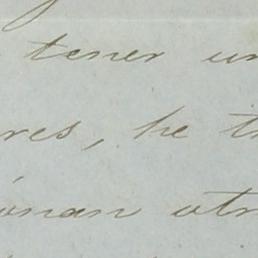 tener un
res, he t
onan otr